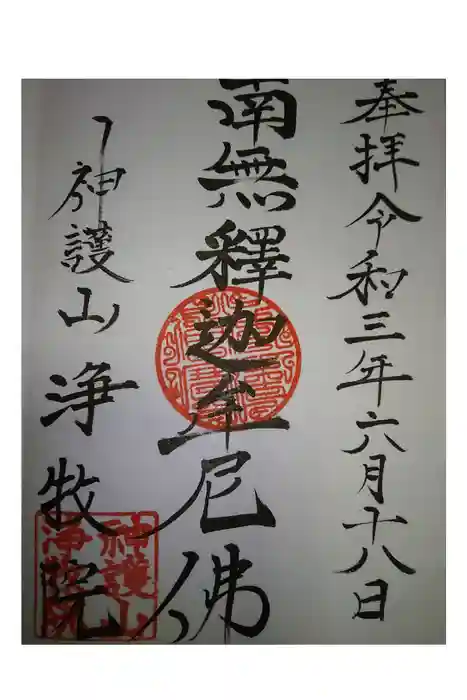 奉拝令和三年六月十八日
南無釋迦牟尼佛
神護山
浄牧院
神護山